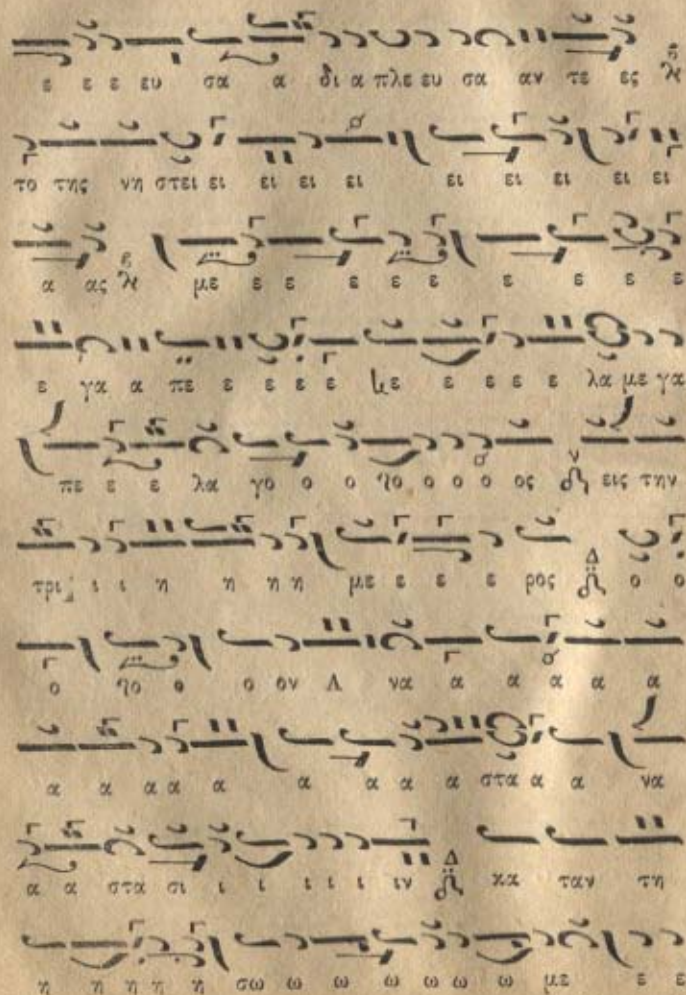 ε ε ε ευ σα α δι α πλε ευ σα αν τε ες
το της νη στει ει ει ει ει ει ει ει ει ει
α ας με ε ε ε ε ε ε ε ε ε
ε γα α πε ε ε ε ε με ε ε ε ε λα με γα
πε ε ε λα γο ο ο λο ο ο ο ος εις την
τρι ι ι η η η η με ε ε ε ρος ο ο
ο λο ο ο ον Α να α α α α α
α α α α α α α α α στα α α να
α α στα σι ι ι ι ι ι ιν κα ταν τη
η η η η η σω ω ω ω ω ω με ε ε